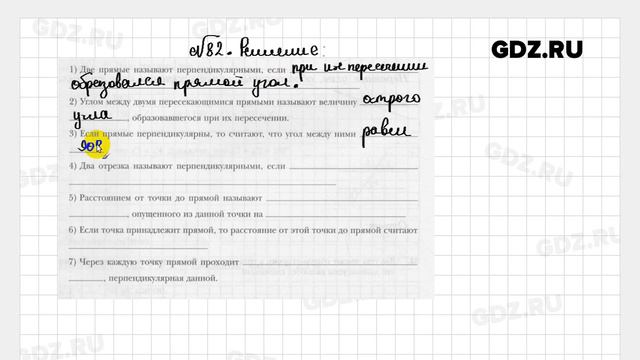 №82. Решение:
GDZ.RU
1) Две прямые называют перпендикулярными, если при их пересечении
образовался прямой угол.
2) Углом между двумя пересекающимися прямыми называют величину острого
угла, образовавшегося при их пересечении.
3) Если прямые перпендикулярны, то считают, что угол между ними равен
90°
4) Два отрезка называют перпендикулярными, если
5) Расстоянием от точки до прямой называют
, опущенного из данной точки на
6) Если точка принадлежит прямой, то расстояние от этой точки до прямой считают
7) Через каждую точку прямой проходит
, перпендикулярная данной.